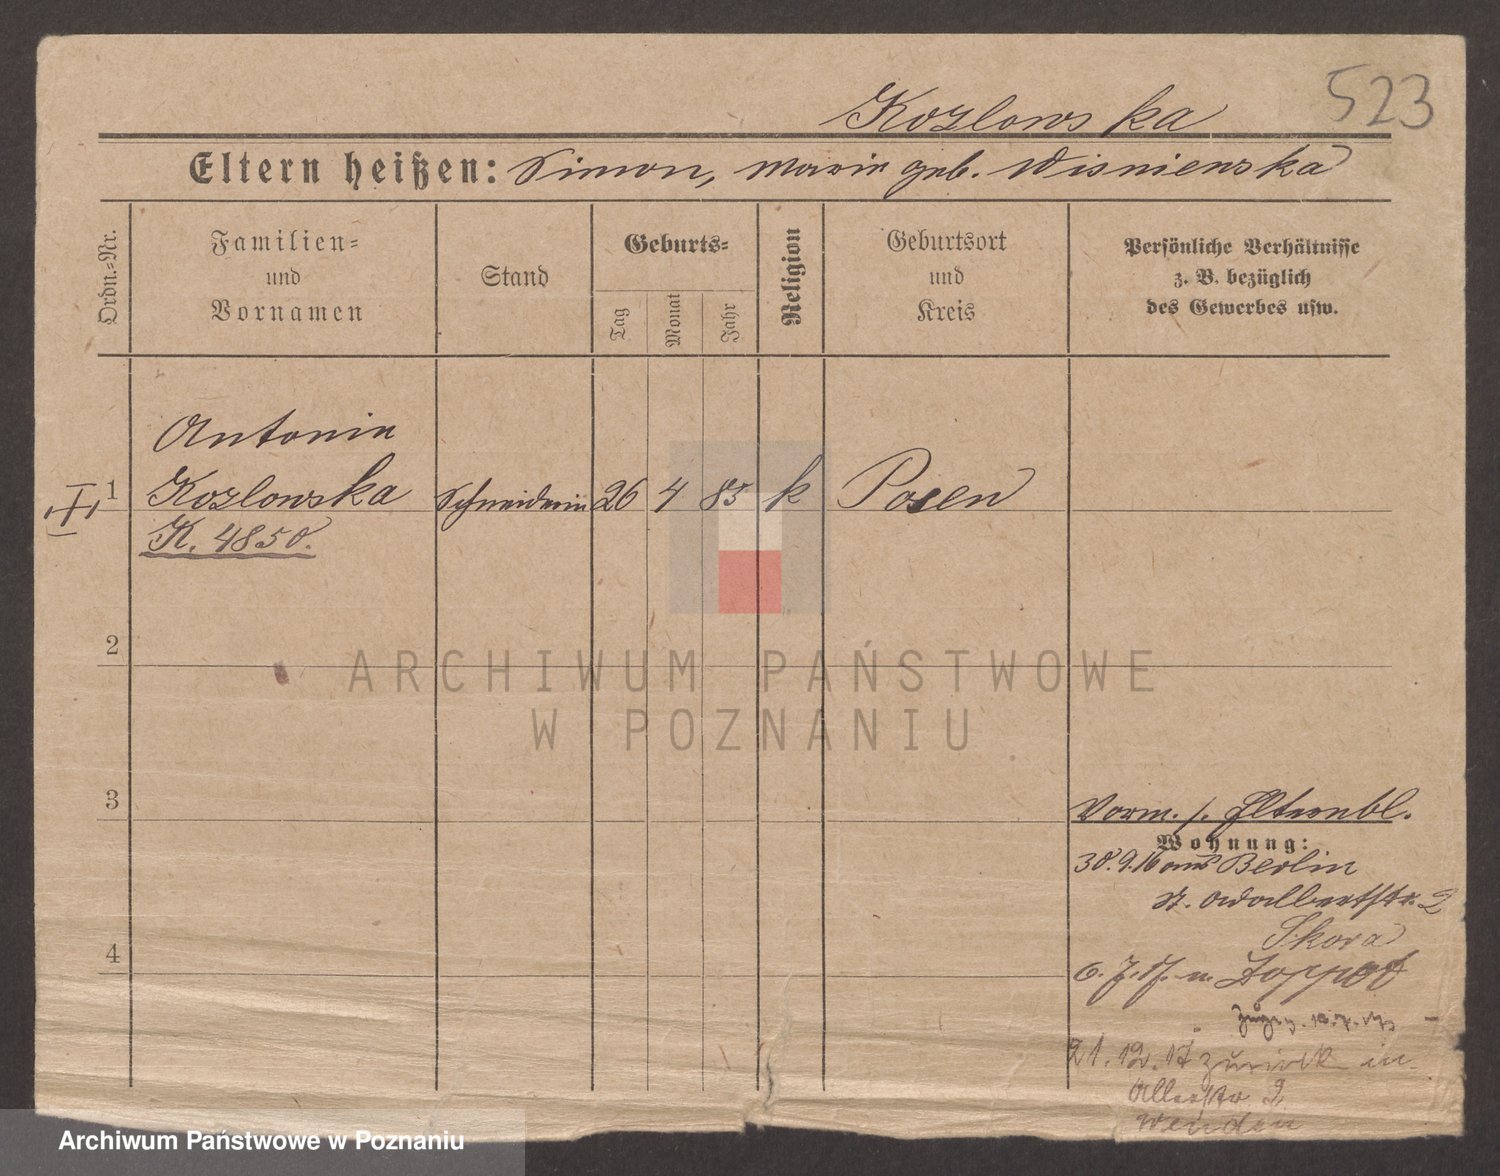 523
Kozlowska
Eltern heißen: Simon, Marie geb. Wisnienska
Ordn.-Nr.
Familien=
und
Vornamen
Stand
Geburts=
Tag
Monat
Jahr
Religion
Geburtsort
und
Kreis
Persönliche Verhältnisse
z. B. bezüglich
des Gewerbes usw.
Antonie
1 Kozlowska Schneiderin 26 4 85 k Posen
K. 4850.
2
ARCHIWUM PAŃSTWOWE
W POZNANIU
3
Vorm. s. Elternbl.
Wohnung:
30.9.16 aus Berlin
St. Adalbertstr. 2
Skora
4
6. 7. 17. n. Zoppot
21.12.17 zurück in
2
Archiwum Państwowe w Poznaniu